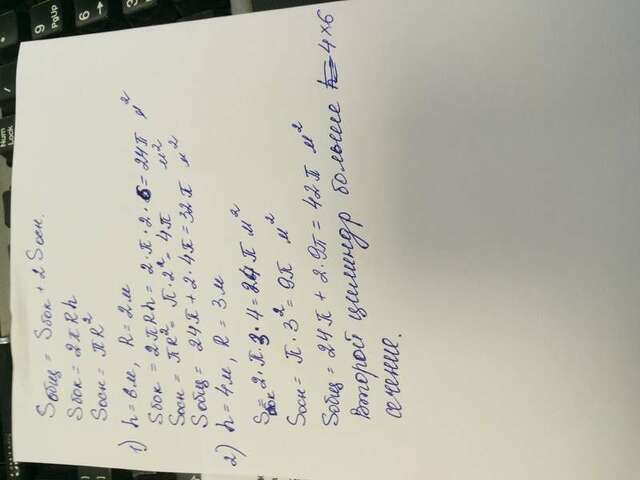 Sобщ = Sбок + 2Sосн.
Sбок = 2πRh
Sосн = πR²
1) h = 6м, R = 2м
Sбок = 2πRh = 2·π·2·6 = 24π м²
Sосн = πR² = π·2² = 4π м²
Sобщ = 24π + 2·4π = 32π м²
2) h = 4м, R = 3м
Sбок = 2·π·3·4 = 24π м²
Sосн = π·3² = 9π м²
Sобщ = 24π + 2·9π = 42π м²
Второй цилиндр больше 4×6
сечение.
9
PgUp
6
Num
Lock
/